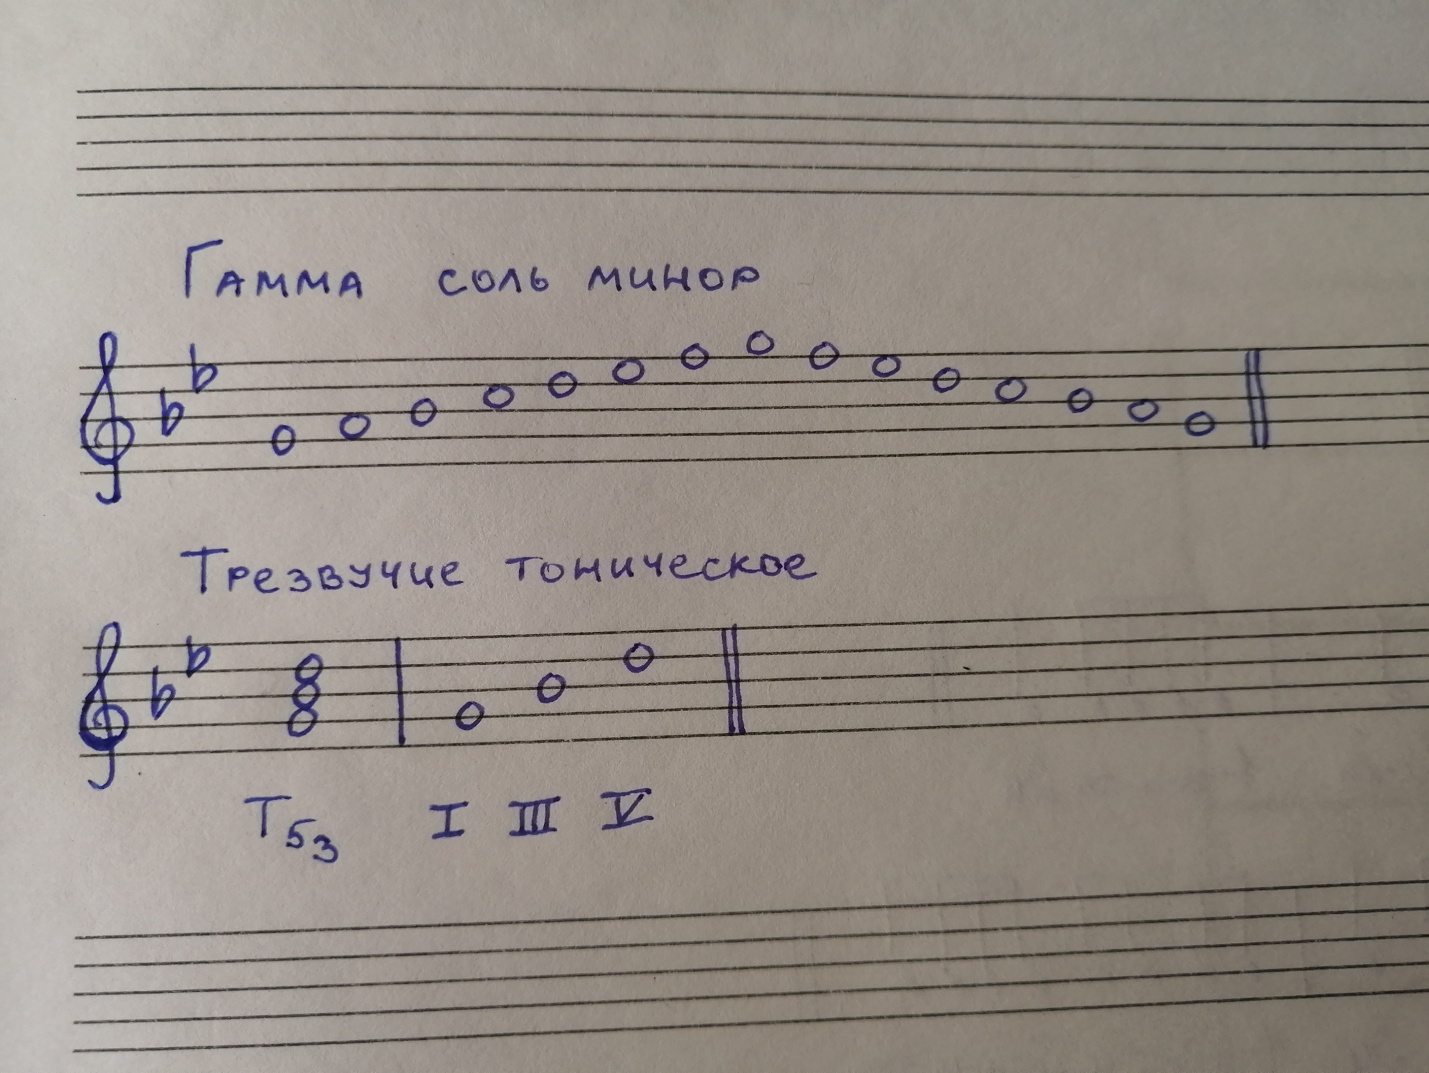 Гамма соль минор
Трезвучие тоническое
T53 I III V